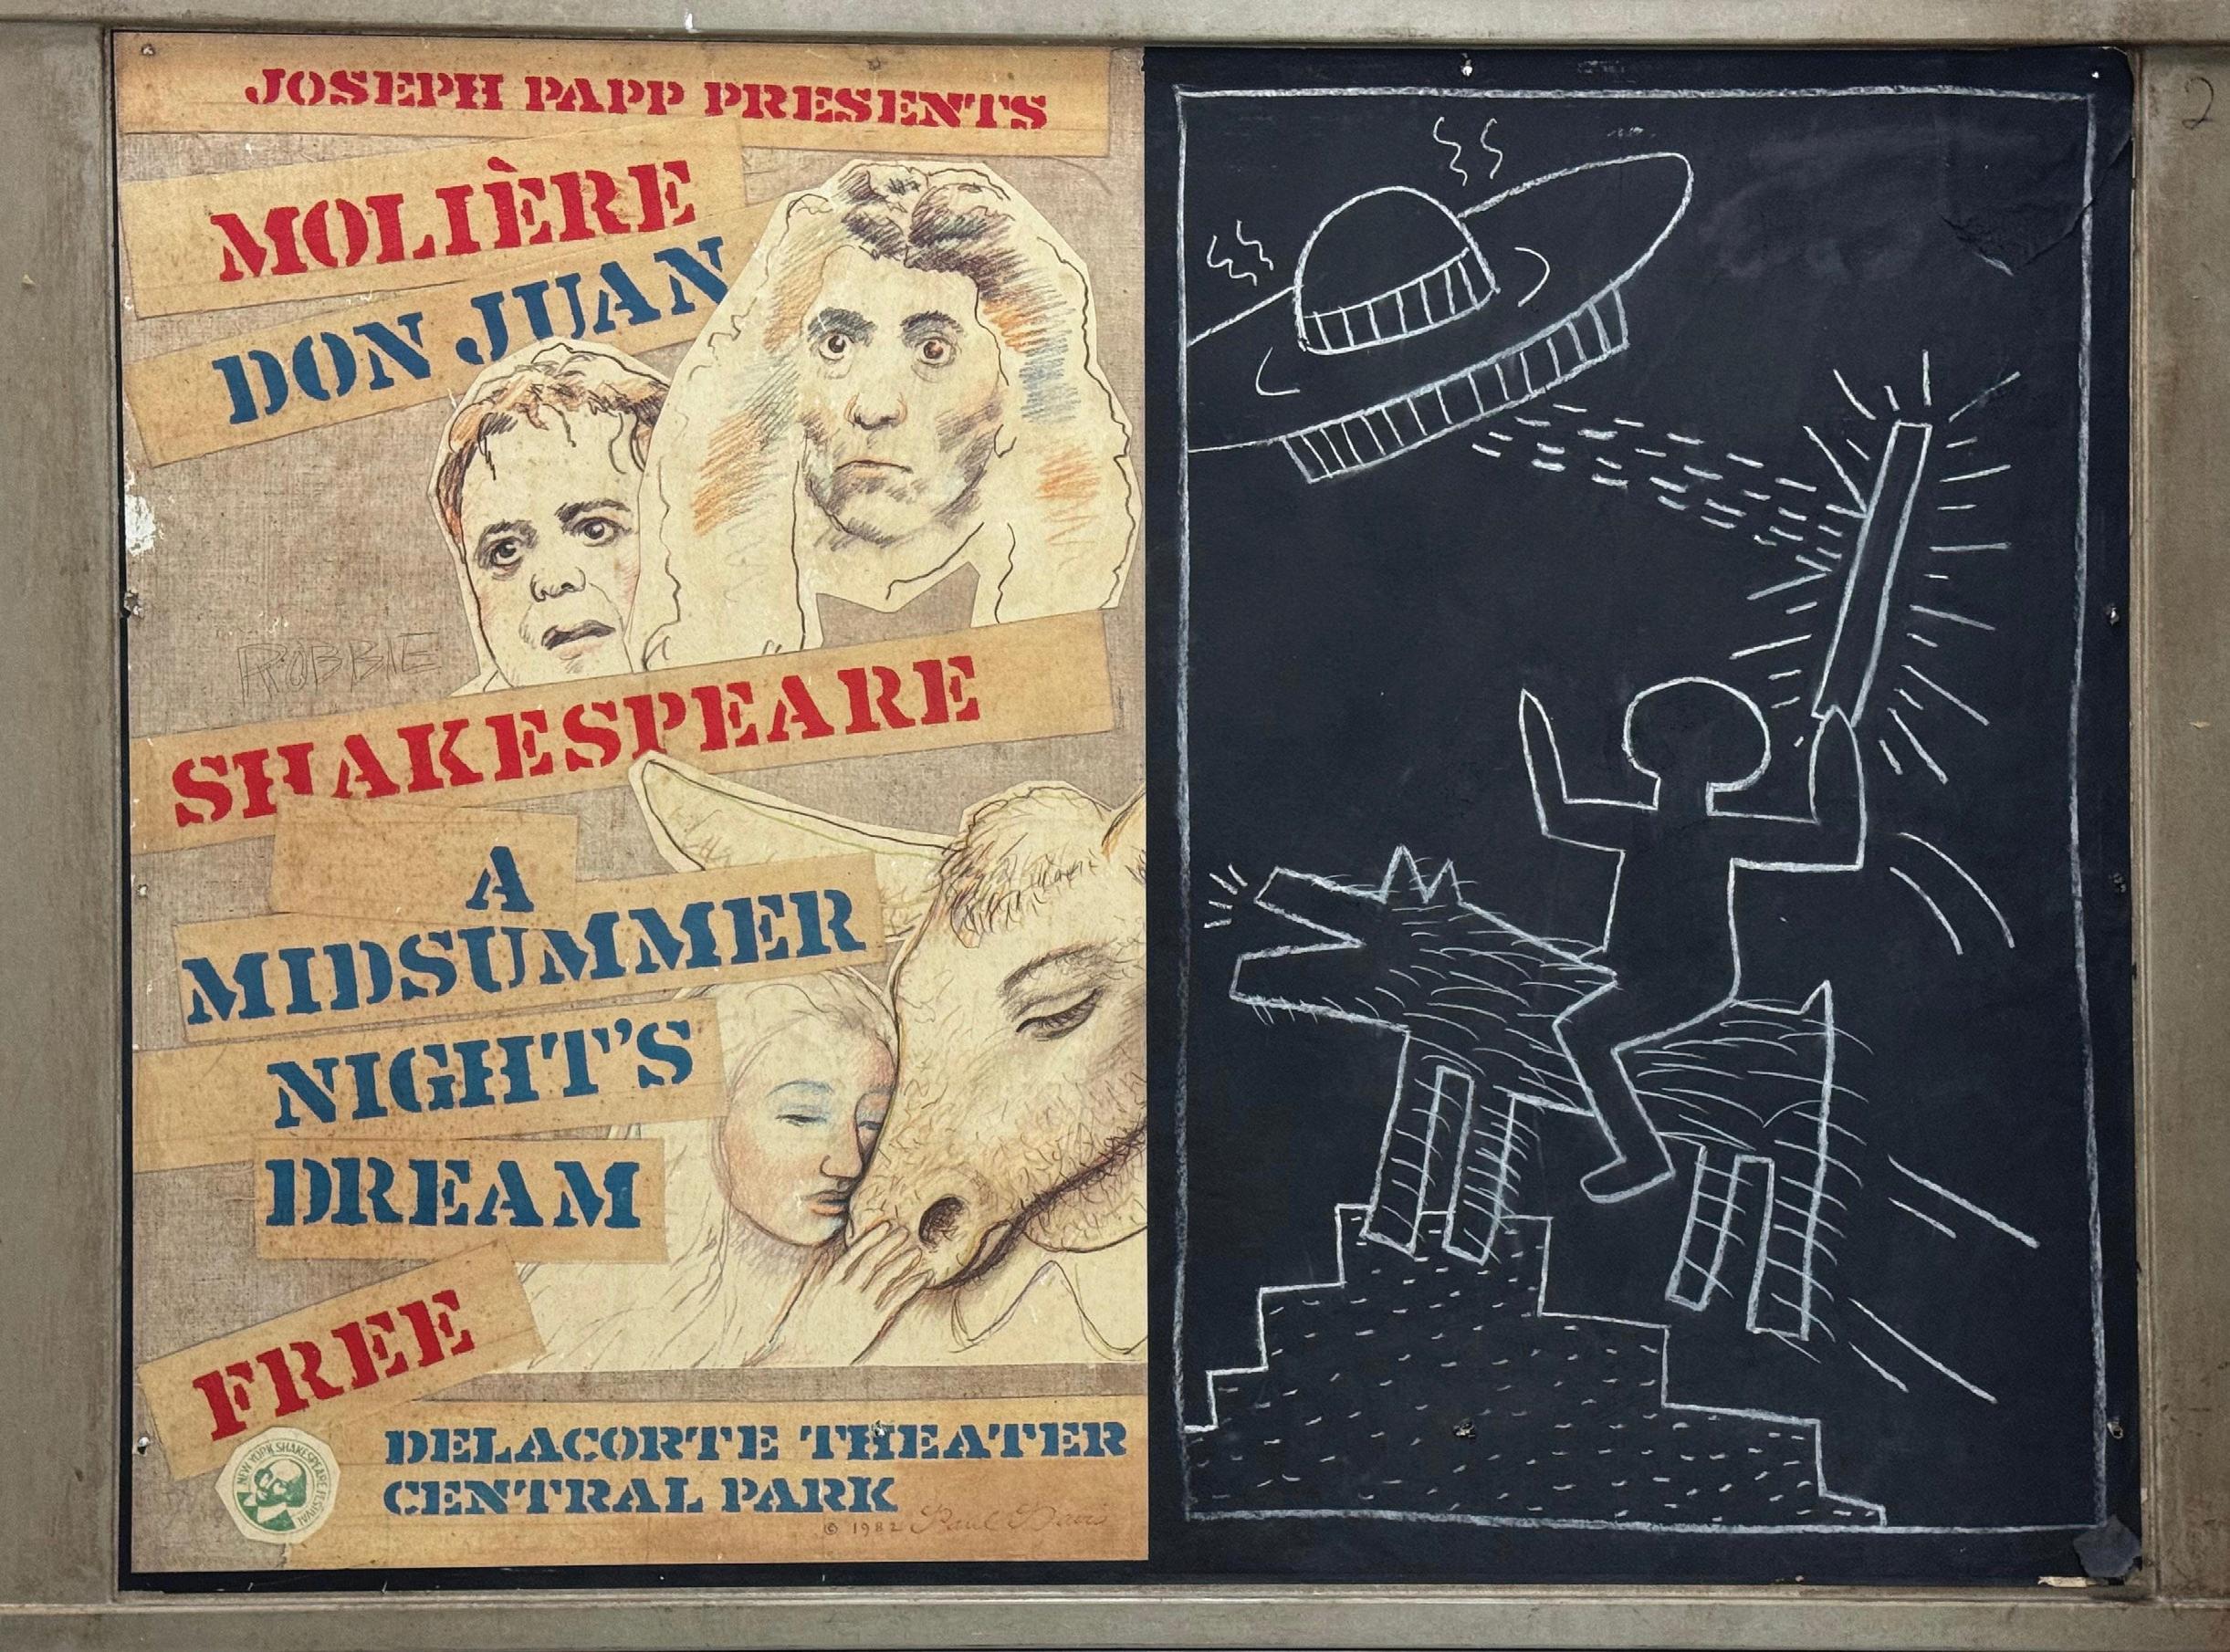 JOSEPH PAPP PRESENTS
MOLIÈRE
DON JUAN
ROBBIE
SHAKESPEARE
A
MIDSUMMER
NIGHT'S
DREAM
FREE
NEW YORK SHAKESPEARE FESTIVAL
DELACORTE THEATER
CENTRAL PARK
© 1982 Paul Davis
2